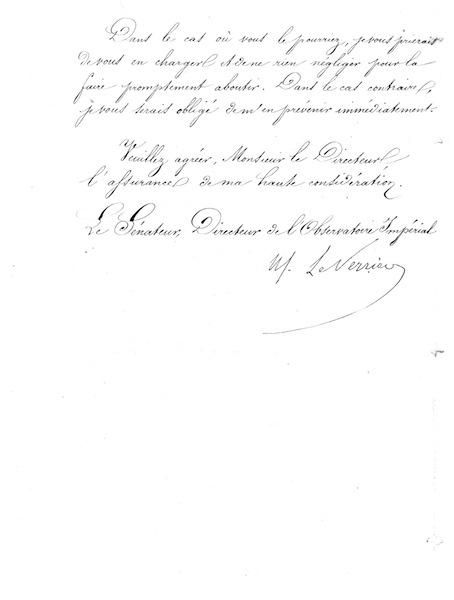 Dans le cas où vous le pourriez, je vous prierais
de vous en charger et de ne rien négliger pour la
faire promptement aboutir. Dans le cas contraire,
je vous serais obligé de m'en prévenir immédiatement.
Veuillez agréer, Monsieur le Directeur
l'assurance de ma haute considération.
Le Sénateur, Directeur de l'Observatoire Impérial
U. Le Verrier